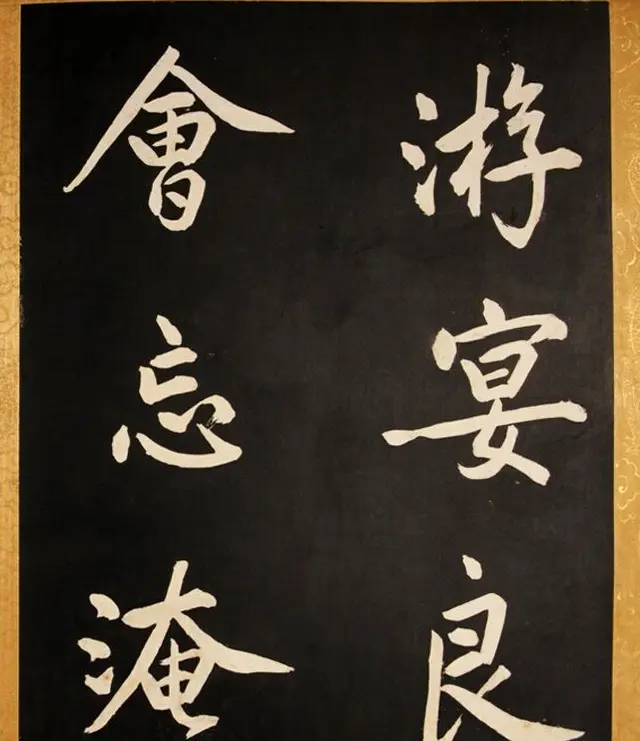 游宴良
會忘淹